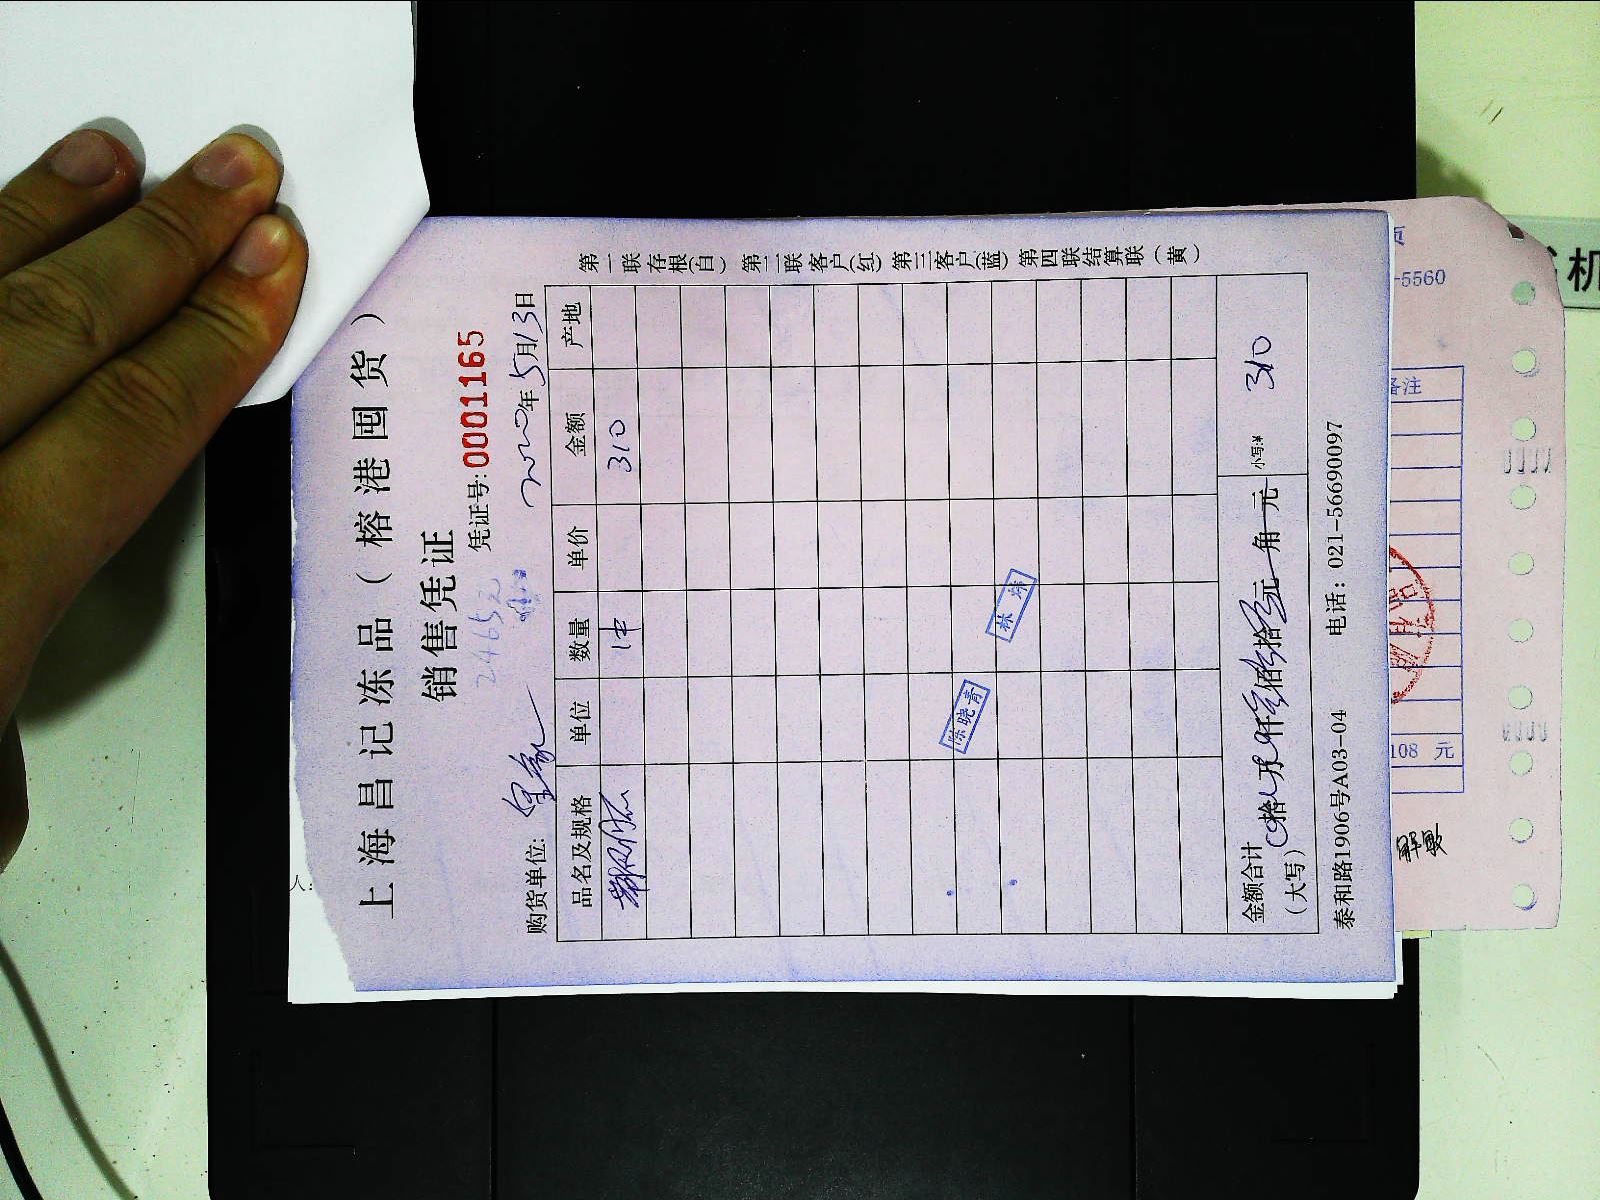 上海昌记冻品（榕港囤货）
销售凭证
凭证号:0001165
2465元
购货单位: 2020年5月13日
品名及规格 单位 数量 单价 金额 产地
1件 310
陈晓青
林炜
金额合计（大写） 拾 万 仟 佰 拾 元 角 元 小写:¥ 310
泰和路1906号A03-04 电话：021-56690097
第一联存根(白) 第二联客户(红) 第三客户(蓝) 第四联结算联（黄）
人:
-5560
备注
108 元
机